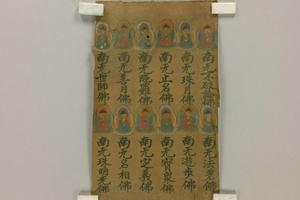 南无不破論佛
南无珠月佛
南无正名佛
南无佛
南无善月佛
南无世師佛
南无法佛
南无遊步佛
南无寶佛
南无定義佛
南无名相佛
南无珠明佛